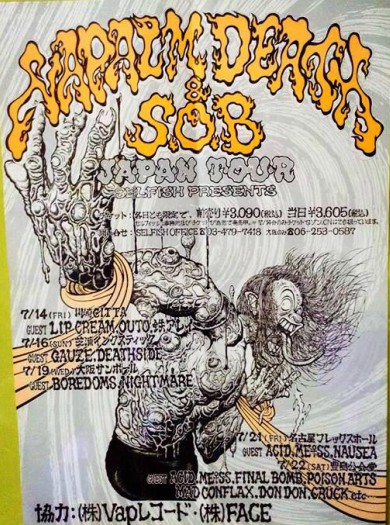 NAPALM DEATH
&
S.O.B
JAPAN TOUR
SELFISH PRESENTS
チケット：各日とも限定で、前売り¥3,090(税込) 当日¥3,605(税込)
SELFISH OFFICE ☎03-479-7418 大阪のみ☎06-253-0587
7/14(FRI) 川崎CITTA
GUEST LIP CREAM, OUTO, 鉄アレイ
7/16(SUN) 芝浦インクスティック
GUEST GAUZE, DEATHSIDE
7/19(WED) 大阪サンホール
GUEST BOREDOMS, NIGHTMARE
7/21(FRI) 名古屋フレックスホール
GUEST ACID, MEASS, NAUSEA
7/22(SAT) 豊島公会堂
GUEST ACID, MEASS, FINAL BOMB, POISON ARTS
CONFLAX, DON DON, CRUCK etc
協力：(株)Vapレコード・(株)FACE